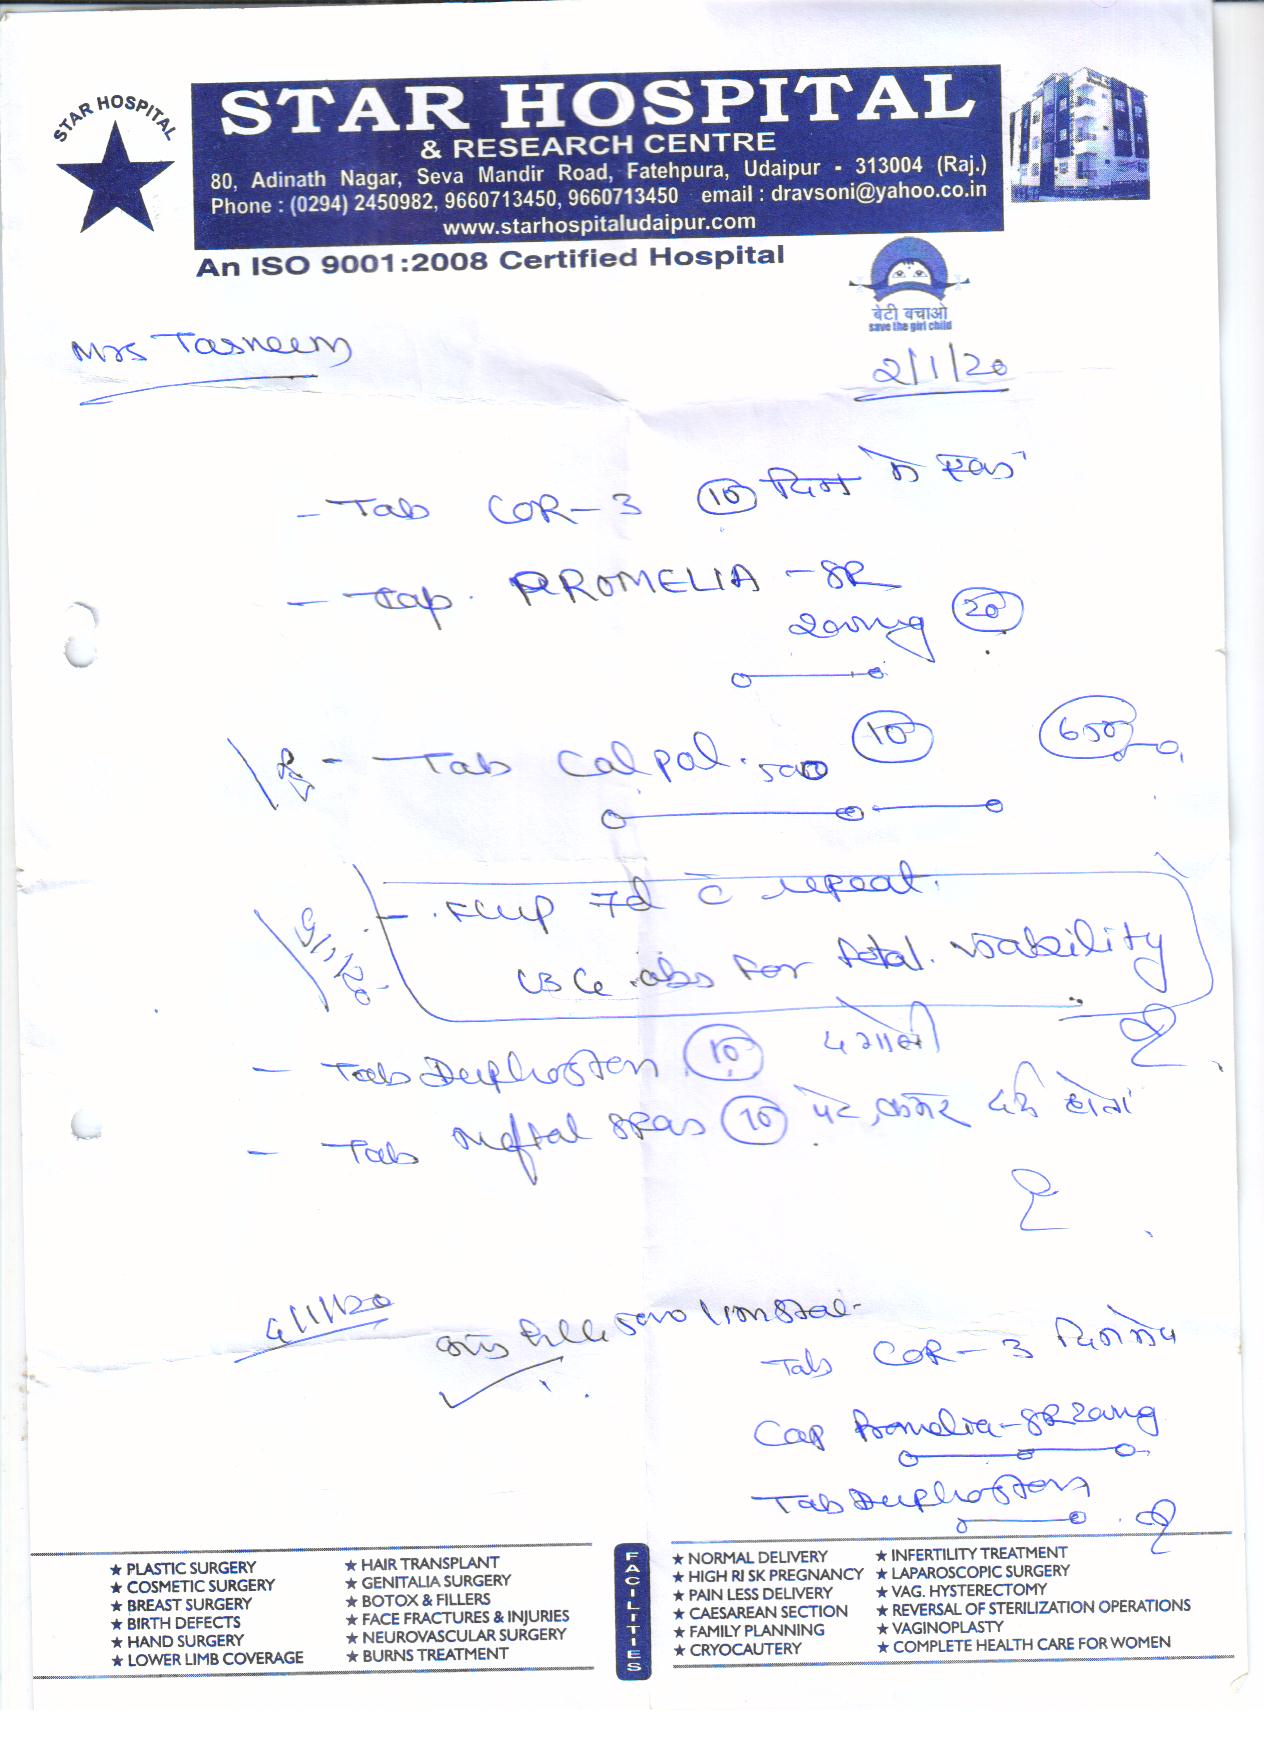 STAR HOSPITAL
STAR HOSPITAL
& RESEARCH CENTRE
80, Adinath Nagar, Seva Mandir Road, Fatehpura, Udaipur - 313004 (Raj.)
Phone : (0294) 2450982, 9660713450, 9660713450 email : dravsoni@yahoo.co.in
www.starhospitaludaipur.com
An ISO 9001:2008 Certified Hospital
बेटी बचाओ
save the girl child
Mrs Tasneem
2/1/20
- Tab COR-3 10 दिन में एक
- Cap. PROMELIA - SR
200mg 20
- Tab Calpol. 500 10 650
- F/up 7d c repeat.
USG obs For fetal. viability
9/1/20
- Tab Duphaston 10
- Tab Meftal spas 10 पेट, कमर दर्द होने
Tab COR-3
Cap Promelia-SR 200mg
Tab Duphaston
FACILITIES
★ PLASTIC SURGERY
★ COSMETIC SURGERY
★ BREAST SURGERY
★ BIRTH DEFECTS
★ HAND SURGERY
★ LOWER LIMB COVERAGE
★ HAIR TRANSPLANT
★ GENITALIA SURGERY
★ BOTOX & FILLERS
★ FACE FRACTURES & INJURIES
★ NEUROVASCULAR SURGERY
★ BURNS TREATMENT
★ NORMAL DELIVERY
★ HIGH RI SK PREGNANCY
★ PAIN LESS DELIVERY
★ CAESAREAN SECTION
★ FAMILY PLANNING
★ CRYOCAUTERY
★ INFERTILITY TREATMENT
★ LAPAROSCOPIC SURGERY
★ VAG. HYSTERECTOMY
★ REVERSAL OF STERILIZATION OPERATIONS
★ VAGINOPLASTY
★ COMPLETE HEALTH CARE FOR WOMEN